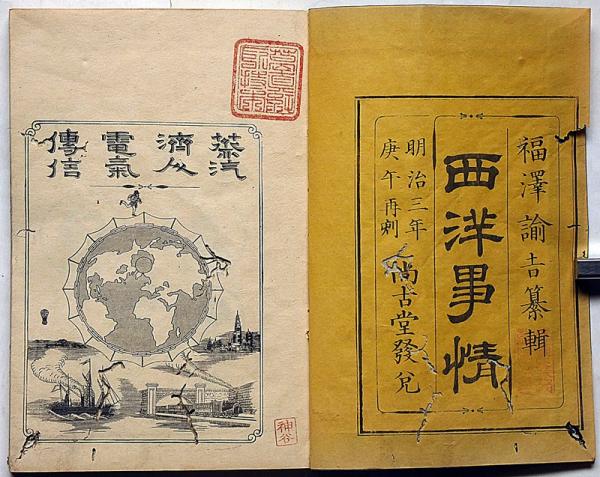 福澤諭吉纂輯
西洋事情
明治三年
庚午再刻
尚古堂發兌
蒸汽
濟人
電氣
傳信
神谷